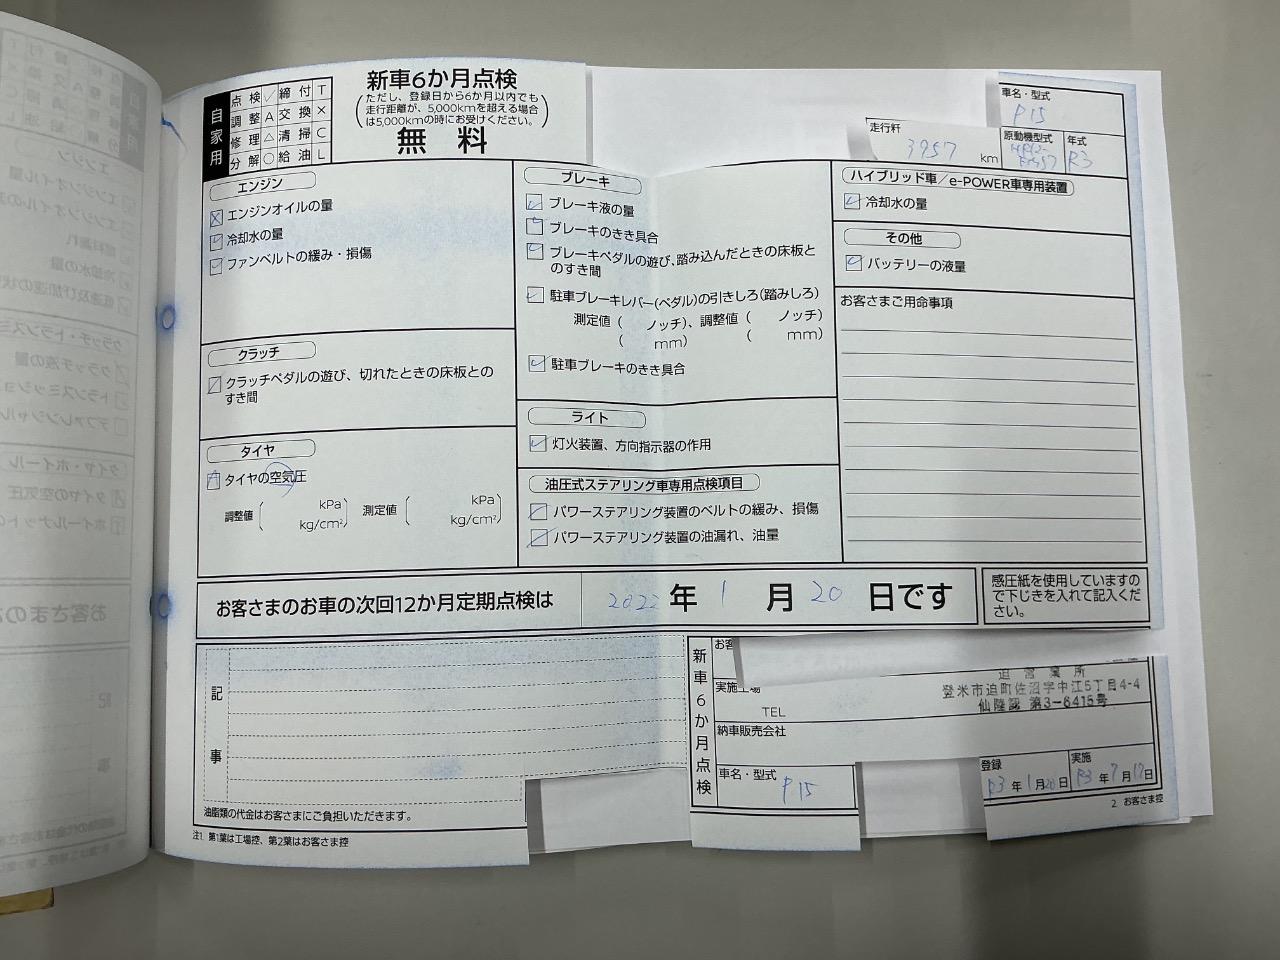 自家用
点検✓ 締付T
調整A 交換×
修理△ 清掃C
分解○ 給油L
新車6か月点検
(ただし、登録日から6か月以内でも
走行距離が、5,000kmを超える場合
は5,000kmの時にお受けください。)
無料
車名・型式
P15
走行粁
3957 km
原動機型式
年式
R3
エンジン
エンジンオイルの量
冷却水の量
ファンベルトの緩み・損傷
クラッチ
クラッチペダルの遊び、切れたときの床板との
すき間
タイヤ
タイヤの空気圧
調整値 ( kPa kg/cm²) 測定値 ( kPa kg/cm²)
ブレーキ
ブレーキ液の量
ブレーキのきき具合
ブレーキペダルの遊び、踏み込んだときの床板と
のすき間
駐車ブレーキレバー(ペダル)の引きしろ(踏みしろ)
測定値 ( ノッチ)、調整値 ( ノッチ)
( mm) ( mm)
駐車ブレーキのきき具合
ライト
灯火装置、方向指示器の作用
油圧式ステアリング車専用点検項目
パワーステアリング装置のベルトの緩み、損傷
パワーステアリング装置の油漏れ、油量
ハイブリッド車/e-POWER車専用装置
冷却水の量
その他
バッテリーの液量
お客さまご用命事項
お客さまのお車の次回12か月定期点検は 2022 年 1 月 20 日です
感圧紙を使用していますの
で下じきを入れて記入くだ
さい。
記事
油脂類の代金はお客さまにご負担いただきます。
注1. 第1葉は工場控、第2葉はお客さま控
新車6か月点検
お客
実施工場
TEL
迫営業所
登米市迫町佐沼字中江5丁目4-4
仙陸認 第3-6415号
納車販売会社
車名・型式
P15
登録
R3年1月20日
実施
R3年7月17日
2 お客さま控